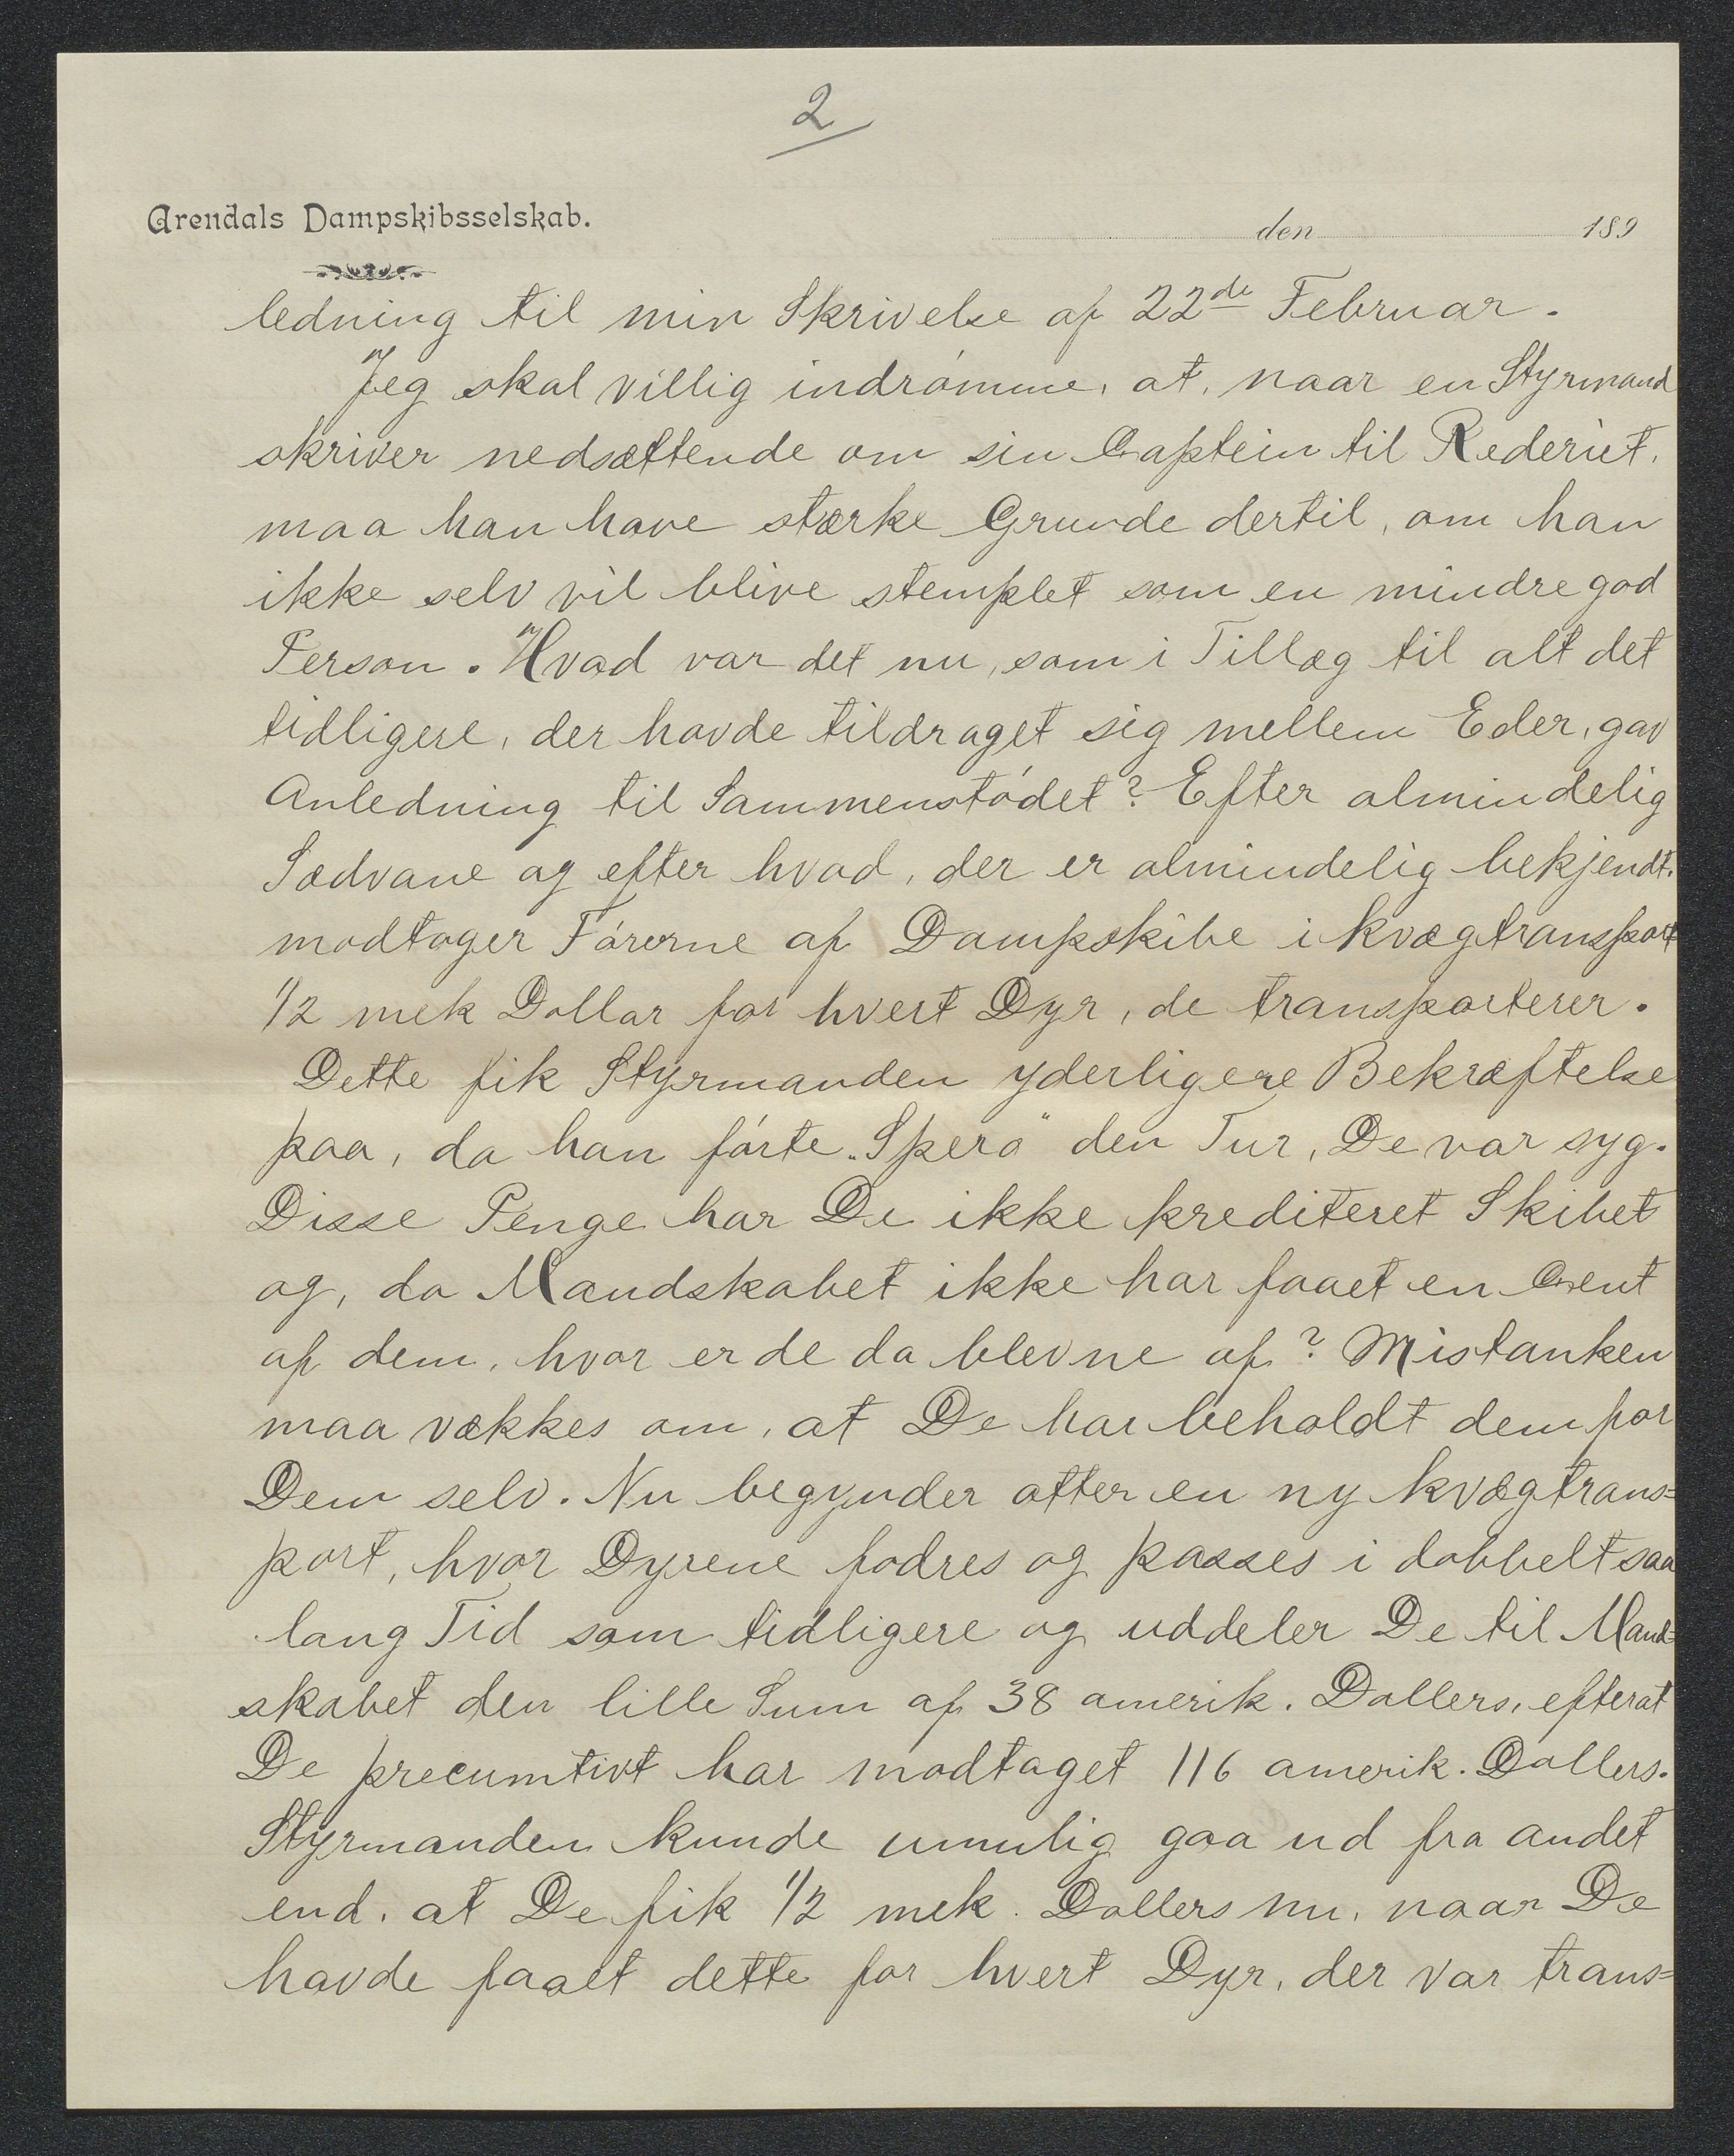 2
Arendals Dampskibsselskab.
den 189
ledning til min Skrivelse af 22de Februar.
Jeg skal villig indrømme, at, naar en Styrmand
skriver nedsættende om sin Captein til Rederiet,
maa han have stærke Grunde dertil, om han
ikke selv vil blive stemplet som en mindre god
Person. Hvad var det nu, som i Tillæg til alt det
tidligere, der havde tildraget sig mellem Eder, gav
Anledning til Sammenstødet? Efter almindelig
Sædvane og efter hvad, der er almindelig bekjendt,
modtager Førerne af Dampskibe i kvægtransport
1/2 mek Dollar for hvert Dyr, de transporterer.
Dette fik Styrmanden yderligere Bekræftelse
paa, da han førte „Spero" den Tur, De var syg.
Disse Penge har De ikke krediteret Skibet
og, da Mandskabet ikke har faaet en Cent
af dem, hvor er de da blevne af? Mistanken
maa vækkes om, at De har beholdt dem for
Dem selv. Nu begynder atter en ny kvægtrans=
port, hvor Dyrene fodres og passes i dobbelt saa
lang Tid som tidligere og uddeler De til Mand=
skabet den lille Sum af 38 amerik. Dollers, efterat
De precumtivt har modtaget 116 amerik. Dollers.
Styrmanden kunde umulig gaa ud fra andet
end, at De fik 1/2 mek. Dollers nu, naar De
havde faaet dette for hvert Dyr, der var trans=